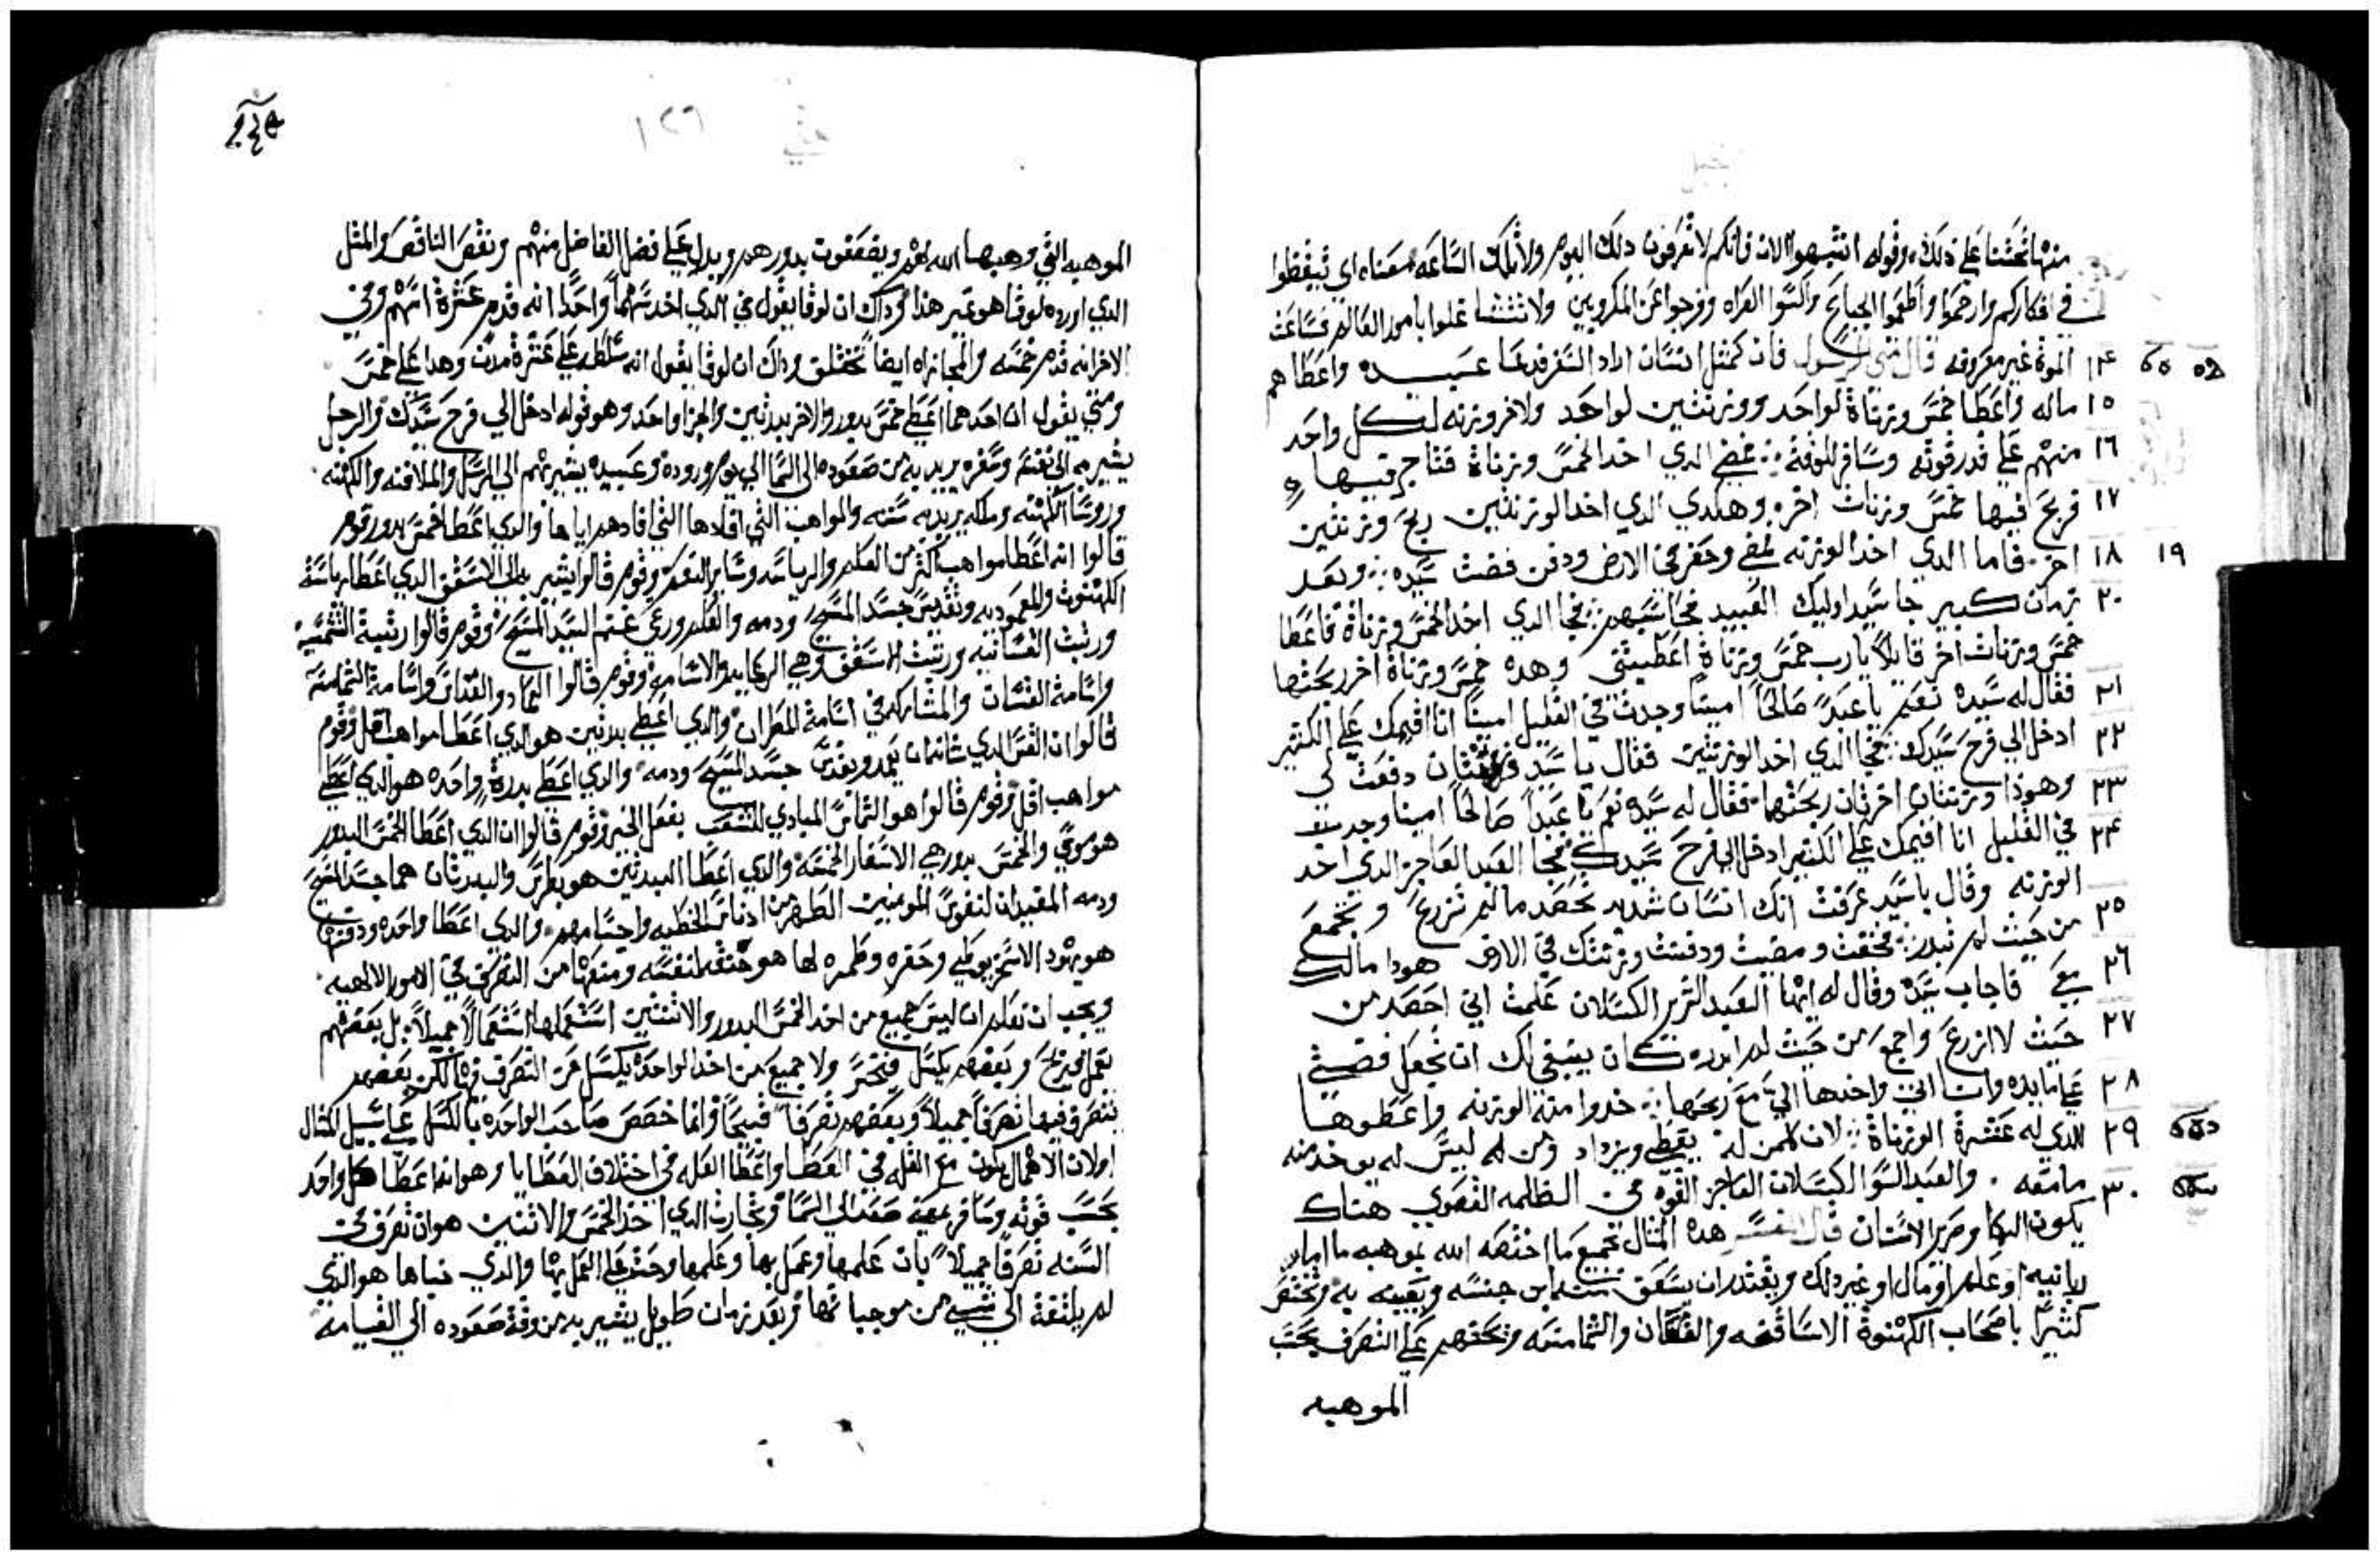 منها تحتنا على ذلك وقوله انتبهوا الان فانكم لا تعرفون دلك اليوم ولا تلك الساعه معناه اي تيقظوا
في افكاركم وارحموا واطعموا الجياع واكسوا العراه وفرجوا عن المكروبين ولا تتشاغلوا بامور العالم فساعت
١٤ الموة غير معروفه قال الرسول فان كمثل انسان اراد السفر فدعا عبيده واعطاهم
١٥ ماله واعطا خمس وزناة لواحد ووزنتين لواحد ولاخر وزنه لكل واحد
١٦ منهم على قدر قوته وسافر للوقة فمضي الدي اخد الخمس وزناة فتاجر فيها
١٧ فربح فيها خمس وزنات اخر وهكدي الدي اخد الوزنتين ربح وزنتين
١٩ ١٨ اخر فاما الدي اخد الوزنه لمضي وحفر في الارض ودفن فضت سيده وبعد
٢٠ زمان كبير جا سيد اوليك العبيد فجا الدي اخد الخمس وزناة فاعطا
خمس وزنات اخر قايلا يارب خمس وزناة اعطيتني وهده خمس وزناة اخر ربحتها
٢١ فقال له سيده نعم يا عبدا صالحا امينا وجدت في القليل امينا انا اقيمك على الكتير
٢٢ ادخل الي فرح سيدك فجا الدي اخد الوزنتين فقال يا سيد وزنتان دفعت لي
٢٣ وهوذا وزنتان اخرتان ربحتهما فقال له سيده نعم يا عبدا صالحا امينا وجدت
٢٤ في القليل انا اقيمك على الكتير ادخل الي فرح سيدك فجا العبد العاجز الدي اخد
الوزنه وقال يا سيد عرفت انك انسان شديد تحصد ما لم تزرع وتجمع
٢٥ من حيت لم تبدر فخفت ومضيت ودفنت وزنتك في الارض هودا مالك
٢٦ معي فاجاب سيده وقال له ايها العبد الشرير الكسلان علمت اني احصد من
٢٧ حيت لا ازرع واجمع من حيت لم ابدره كان ينبغي لك ان تجعل فضتي
٢٨ على مايده وانا اتي واخدها الي مع ربحها خدوا منه الوزنه واعطوها
٢٩ للدي له عشرة الوزناة لان كلمن له يعطي ويزداد ومن لم ليس له يوخد منه
٣٠ مامعه والعبد السو الكسلان العاجز القوه في الظلمه القصوي هناك
يكون البكا وصرير الاسنان قال المفسر هده المثال لجميع ما اختصه الله بموهبه ما اما
ربانيه او علم او مال او غير دلك ويقتدر ان يسعف ابن جنسه ويعينه به ويختص
كثيرا باصحاب الكهنوة الاساقفه والقسان والشمامسه وتحتهم على التصرف بحسب
الموهبه
١٢٦
الموهبه التي وهبها الله لهم ويضعفون بدورهم ويدل على فضل الفاضل منهم ونقص الناقص والمثل
الدي اورده لوقا هو غير هذا وداك ان لوقا يقول في الدي اخد سهما واحدا انه قدم عشرة اسهم وفي
الاخر انه قدم خمسه والمجازاه ايضا تختلق وداك ان لوقا يقول انه سلطه على عشرة مدن وهدا على خمس
ومتي يقول ان احدهما اعطي خمس بدور والاخر بدرتين والجزا واحد وهو قوله ادخل الي فرح سيدك والرجل
يشير به الى نفسه وسفره يريد به من صعوده الى السما الي يوم وروده وعبيده يشير بهم الي الرسل والملافنه والكهنه
وروسا الكهنه وماله يريد به سننه والمواهب التي افادها التي افادهم اياها والدي اعطا خمس بدور قوم
قالوا انه اعطا مواهب اكثر من العلم والرياسه وساير النعم وقوم قالوا يشير به الى الاسقف الدي اعطا رياسة
الكهنوت والمعموديه وتقديس جسد المسيح ودمه والعلم ورعي غنم السيد المسيح وقوم قالوا رتبة الشمسيه
ورتبت القسانيه ورتبت الاسقف وهي الرعايه والاساميد وقوم قالوا العماد والقداس واسامة الشمامسه
واسامة القسان والمشاركه في اسامة المطران والدي اعطي بدرتين هو الدي اعطا مواهب اقل وقوم
قالوا ان القس الدي شانه ان يعمد ويقدس جسد المسيح ودمه والدي اعطي بدرة واحده هو الدي اعطي
مواهب اقل وقوم قالوا هو الشماس المبادي للشعب بفعل الخير وقوم قالوا ان الدي اعطا الخمس البدور
هو موسي والخمس بدور هي الاسفار الخمسه والدي اعطا البدرتين هو بطرس والبدرتان هما جسد المسيح
ودمه المفيدان لنفوس المومنين الطهر من ادناس الخطيه واجسامهم والدي اعطا واحده ودفنها
هو يهود الاسخريوطي وحفره وطمره لها هو خنقه لنفسه ومنعها من التصرف في الامور الالهيه
ويجب ان نعلم ان ليس جميع من اخد الخمس البدور والاتنتين استعملها استعمالا جميلا بل بعضهم
يعمل فيربح وبعضهم يكسل فيخسر ولا جميع من اخد الواحدة يكسل من التصرف فيها لكن بعضهم
يتصرف فيها تصرفا جميلا وبعضهم تصرفا قبيحا وانما خصص صاحب الواحده بالكسل على سبيل المثال
اولان الاهمال يكون مع القله في العطا واعطا القله في اختلاف العطايا وهو انه اعطا كل واحد
بحسب قوته وسافر بمعني صعد الى السما وتجارت الدي اخد الخمس والاتنين هو ان تصرف في
السنه تصرفا جميلا بان علمها وعمل بها وعلمها وحت على العمل بها والدي خباها هو الدي
لم يلتفة الي شي من موجباتها وبعد زمان طويل يشير به من وقة صعوده الي القيامه